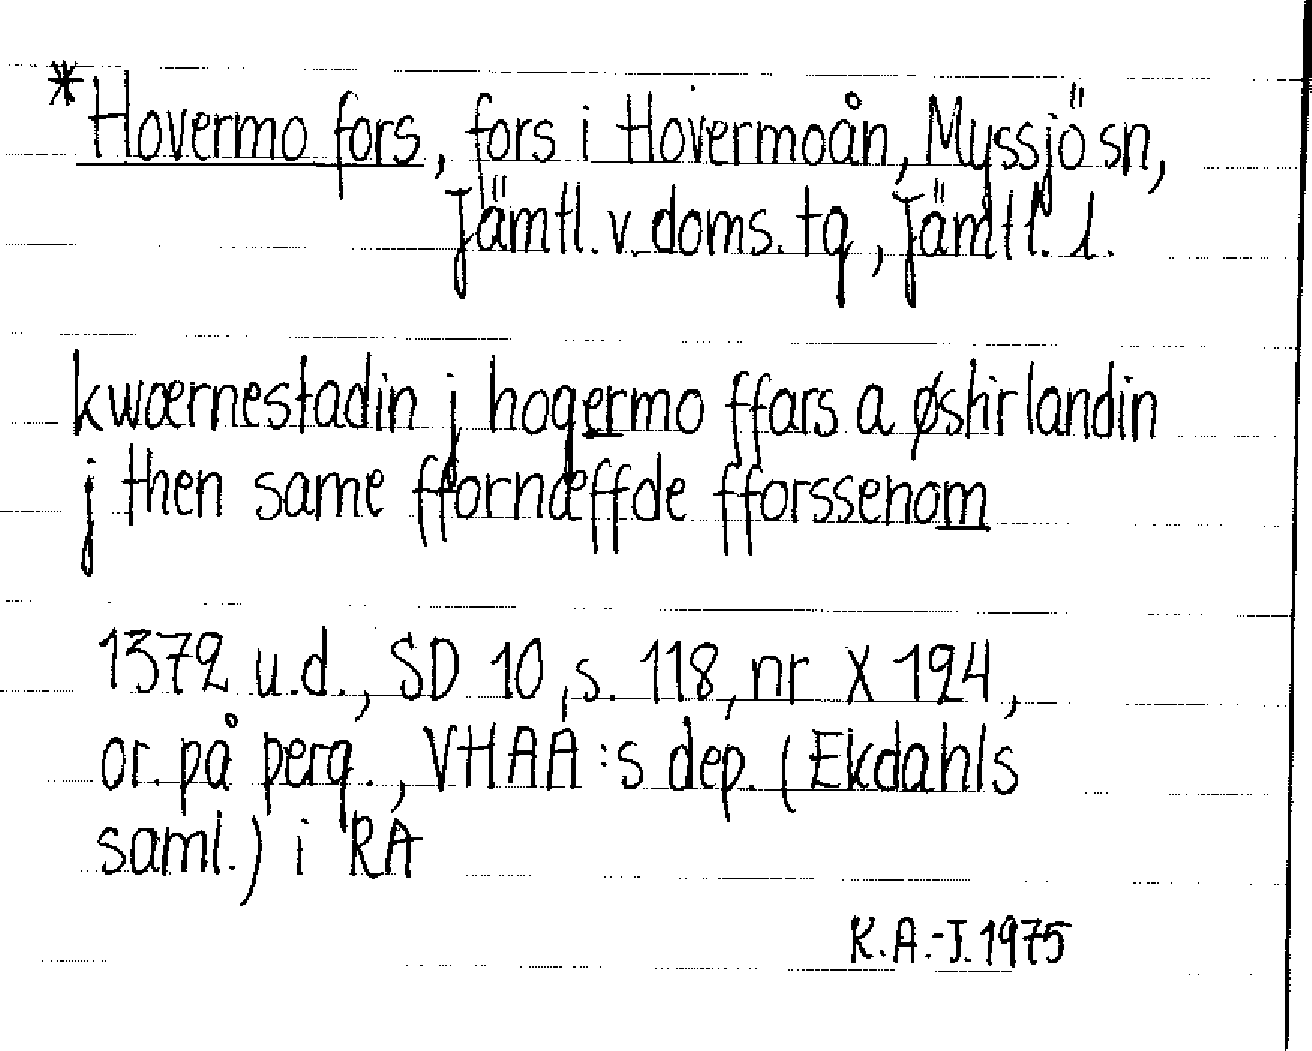 *Hovermo fors, fors i Hovermoån, Myssjö sn,
Jämtl. v. doms. tg, Jämtl. l.
kwærnestadin j hogermo ffars a østirlandin
j then same ffornæffde fforssenom
1372 u.d., SD 10, s. 118, nr X 194,
or. på perg., VHAA:s dep. (Ekdahls
saml.) i RA
K.A.-J. 1975